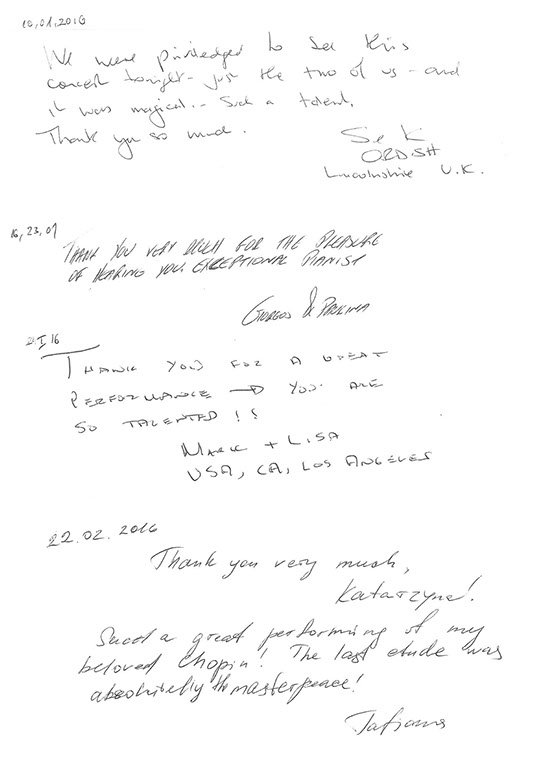 10,01,2016
We were priviledged to see this
concert tonight - just the two of us - and
it was magical. - Such a talent.
Thank you so much.
S e K
ORDISH
Lincolnshire U.K.
16,23,01
THANK YOU VERY MUCH FOR THE PLEASURE
OF HEARING YOU. EXCEPTIONAL PIANIST
GIORGOS & PAULINA
I 16
THANK YOU FOR A GREAT
PERFORMANCE → YOU ARE
SO TALENTED!!
MARK + LISA
USA, CA, LOS ANGELES
22.02.2016
Thank you very much,
Katarzyna!
Such a great performing of my
beloved Chopin! The last etude was
absolutely the masterpeace!
Tatiana